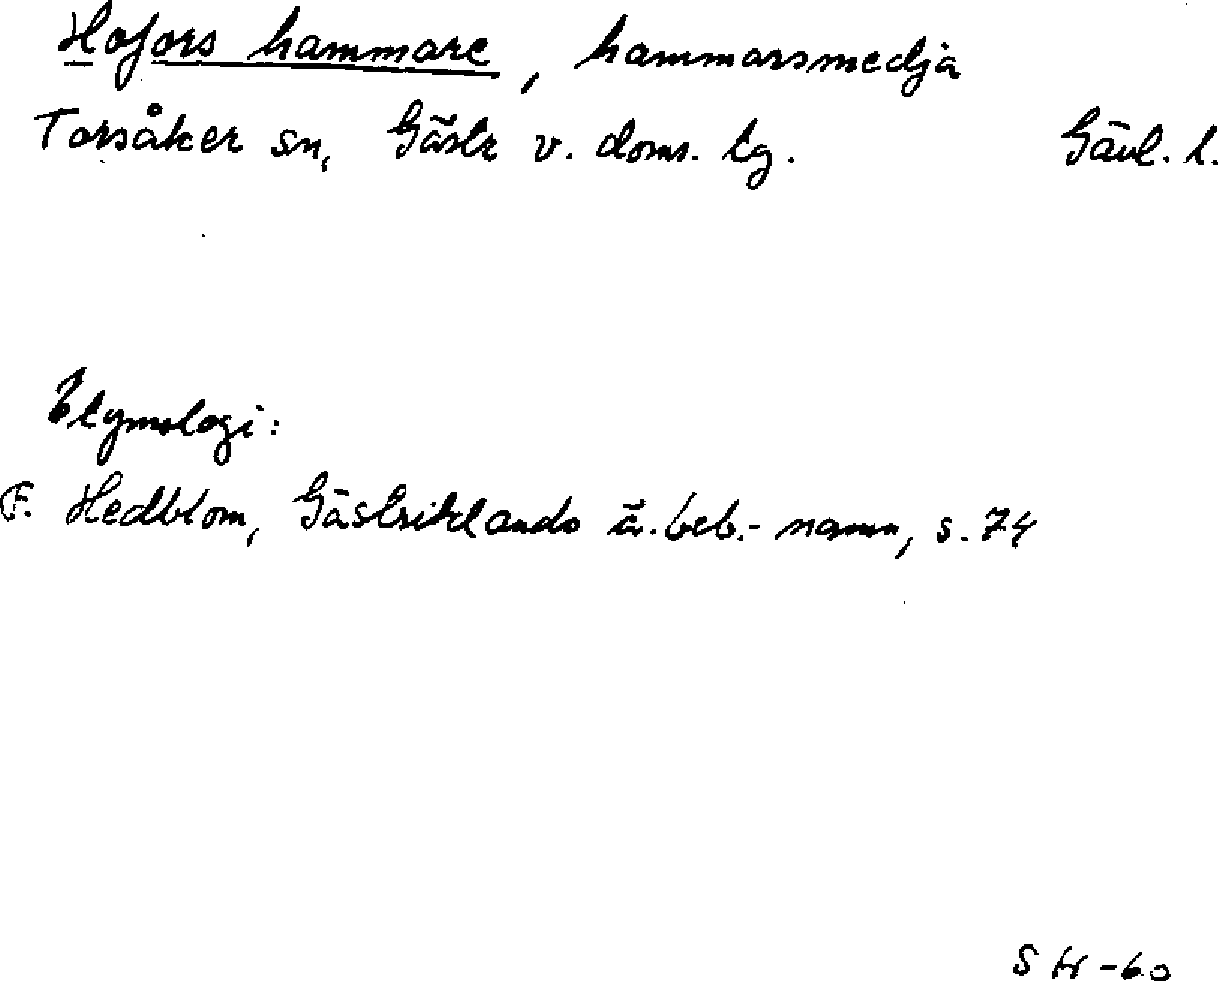 Hofors hammare, hammarsmedja
Torsåker sn, Gästr v. doms. tg. Gävl. l.
Etymologi:
F. Hedblom, Gästriklands ä. beb.-namn, s. 74
S tr -60